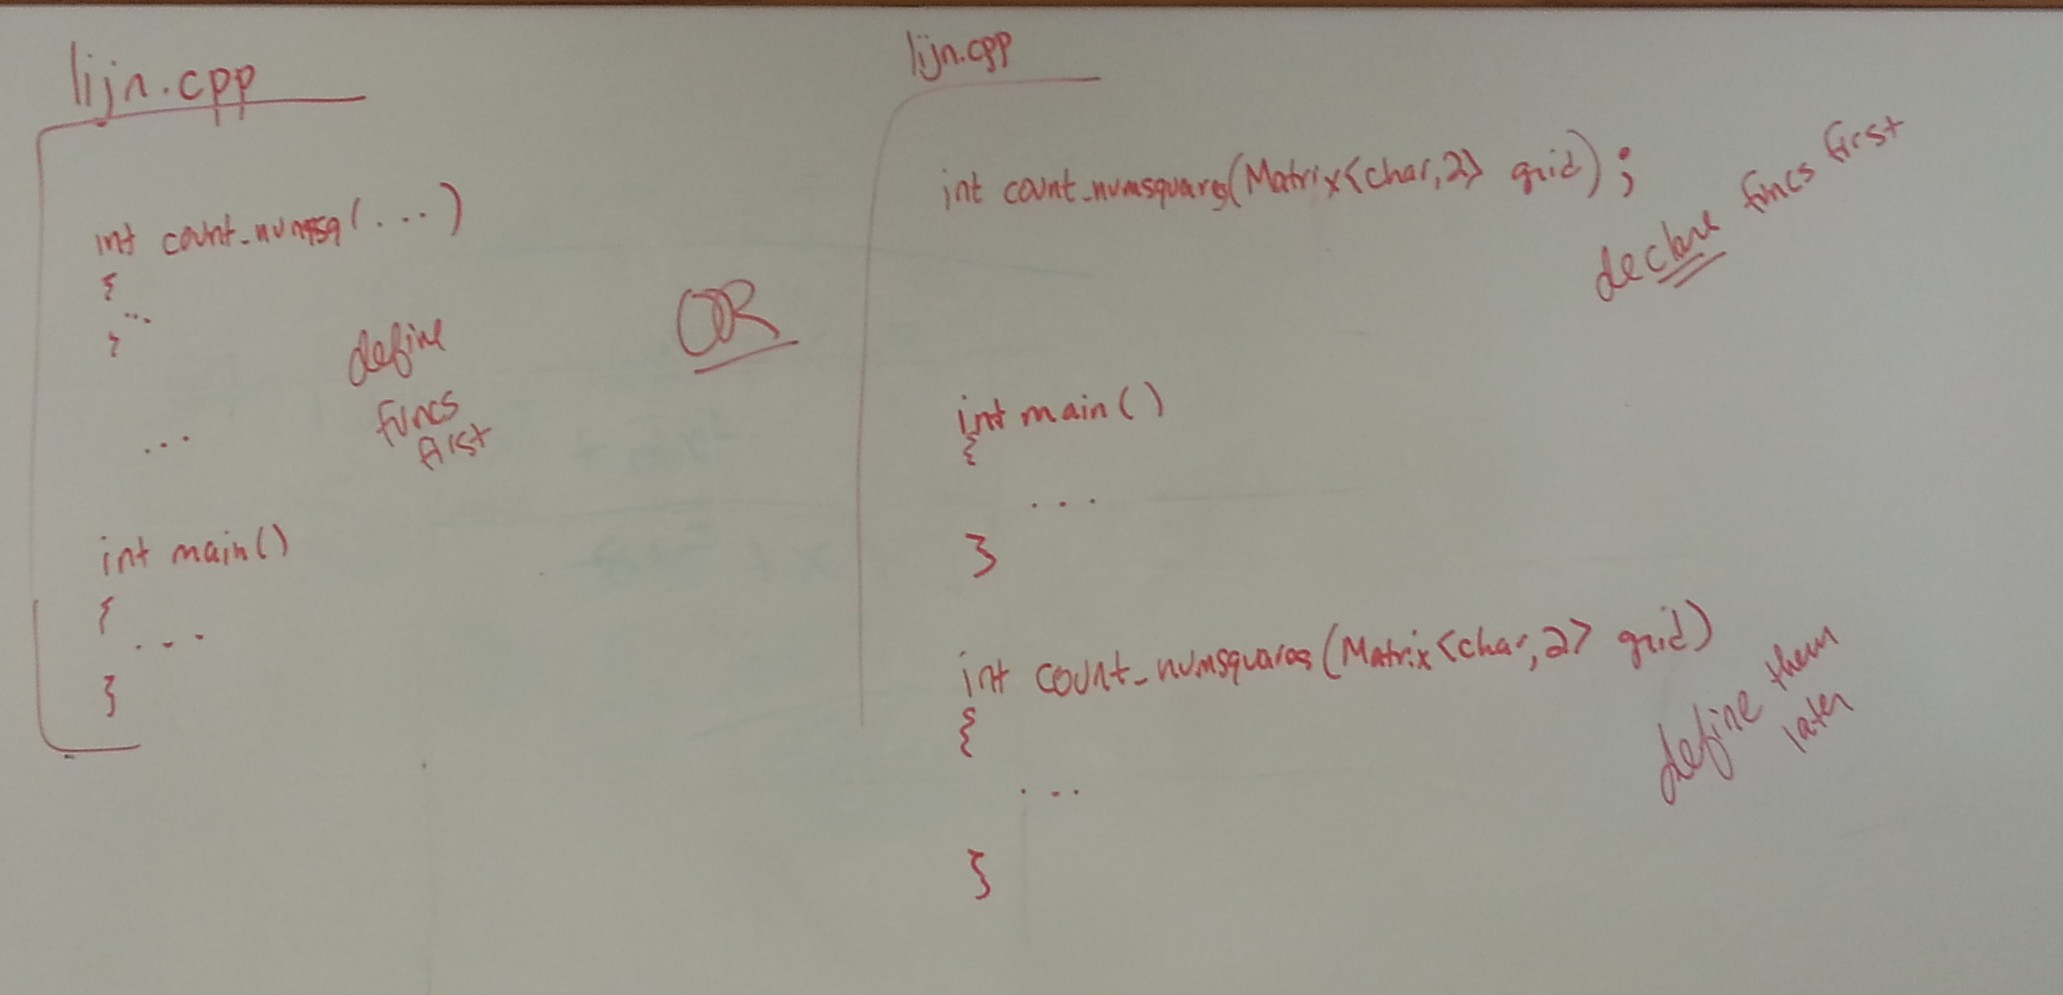 lijn.cpp
int count_numsq(...)
{
...
}
...
define
funcs
first
int main()
{
...
}
OR
lijn.cpp
int count_numsquares(Matrix<char,2> grid);
declare funcs first
int main()
{
...
}
int count_numsquares(Matrix<char,2> grid)
{
...
}
define them
later